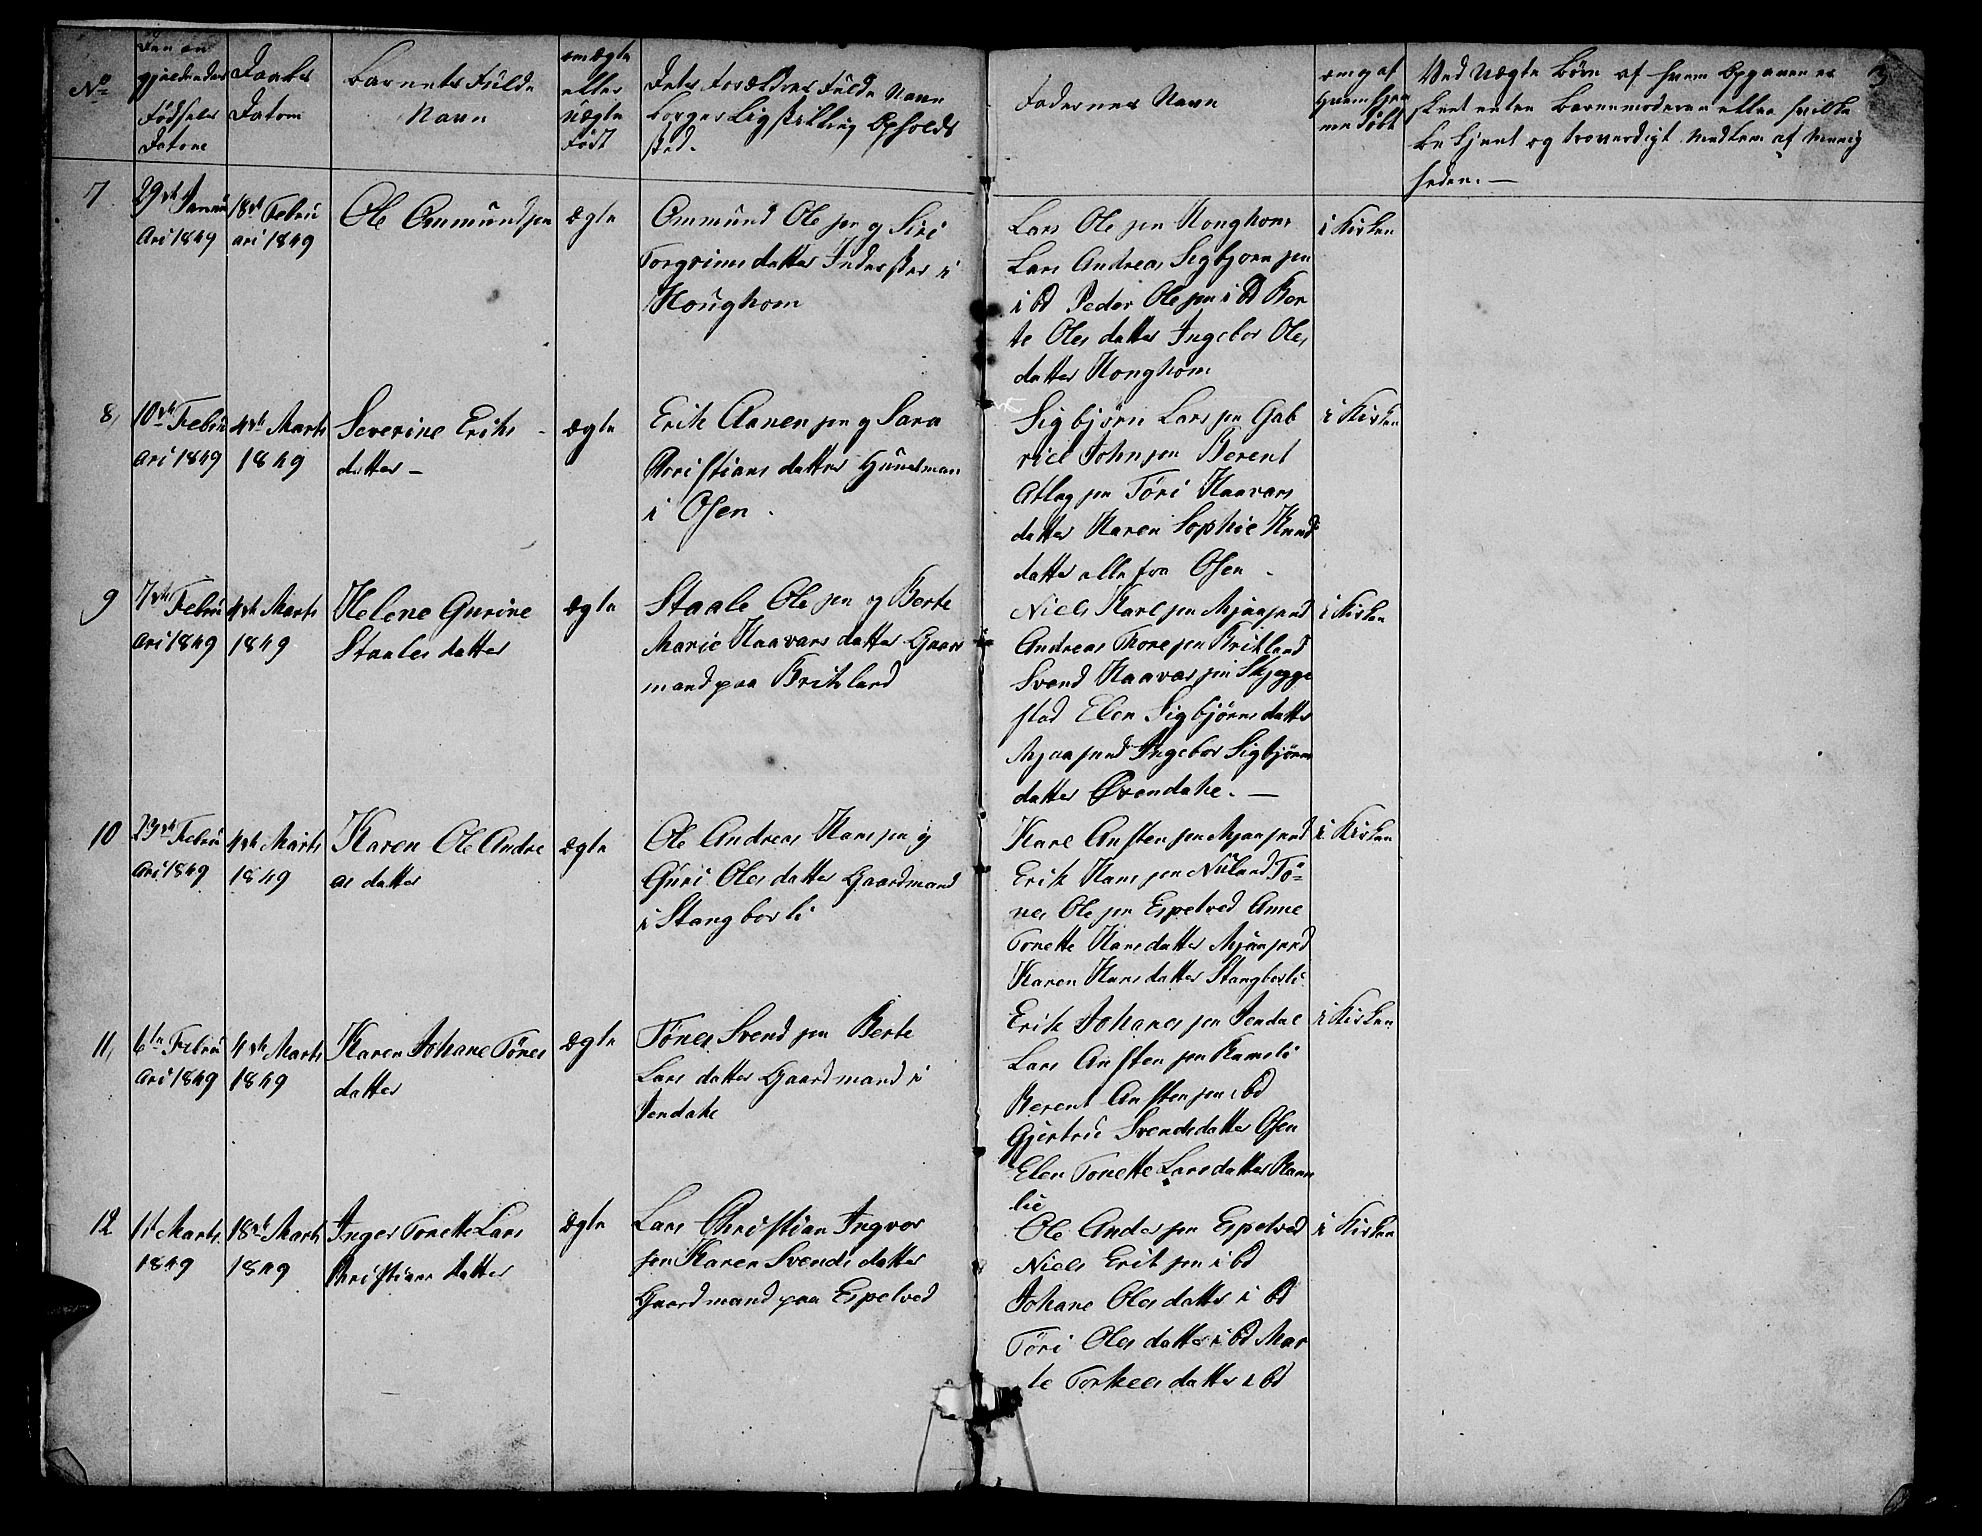 3
No
Den an
gjældendes
Fødsels
Datoe
Daabs
Datom
Barnets Fulde
Navn
om ægte
eller
uægte
Født
Dets Forældres Fulde Navn
Borgerlig Stilling Opholds
sted.
Fadernes Navn
om og af
hvem hjem
me døbt
Ved uægte Børn af hvem Opgaven er
skeet enten Barnemoderen eller hvilke
bekjent og troverdigt Medlem af Menig
heden. —
7
29de Janu
ari 1849
18de Febru
ari 1849
Ole Ommundsen
ægte
Ommund Olesen og Siri
Torgrims datter Inderster i
Houghom
Lars Olesen Houghom
Lars Andreas Sigbjørnsen
i bd Peder Olesen i bd Ber
te Oles datter Ingebor Oles
datter Houghom
i Kirken
8,
10de Febru
ari 1849
4de Marts
1849
Severine Eriks
datter —
ægte
Erik Aanensen og Sara
Christians datter Huusmand
i Osen .
Sigbjørn Larsen Gab
riel Johnsen Berent
Atlagsen Tøri Haavars
datter Karen Sophie Knud
datter alle fra Osen
i Kirken
9
7de Febru
ari 1849
4de Marts
1849
Helene Gurine
Staales datter
ægte
Staale Olesen og Berte
Marie Haavars datter Gaard
mand paa Birkeland
Niels Karlsen Mjaasund
Andreas Thoresen Birkeland
Svend Haavarsen Skjegge
stad Elen Sigbjørns datter
Mjaasund Ingebor Sigbjørns
datter Øvendahe. —
i Kirken
10
23de Febru
ari 1849
4de Marts
1849
Karen Ole Andre
as datter
ægte
Ole Andreas Hansen og
Guri Oles datter Gaardmand
i Stangborli
Karl Anstensen Mjaasund
Erik Hansen Nuland Tø-
nes Olesen Espetved Anne
Tonette Hansdatter Mjaasund
Karen Hansdatter Stangborli
i Kirken
11,
6te Febru
ari 1849
4de Marts
1849
Karen Johane Tønes
datter
ægte
Tønes Svendsen Berte
Lars datter Gaardmand i
Jendahe
Erik Johanessen Jendal
Lars Anstensen Ramsli
Berent Anstensen i bd
Gjertru Svendsdatter Osen
Elen Tonette Larsdatter Ram
lie
i Kirken
12
11te Marts
1849
18de Marts
1849
Inger Tonette Lars
Christians datter
ægte
Lars Christian Ingvor
sen Karen Svends datter
Gaardmand paa Espetved
Ole Andersen Espetved
Niels Eriksen i bd
Johane Oles datter i bd
Tøri Oles datter i bd Mar
te Torkels datter i bd
i Kirken